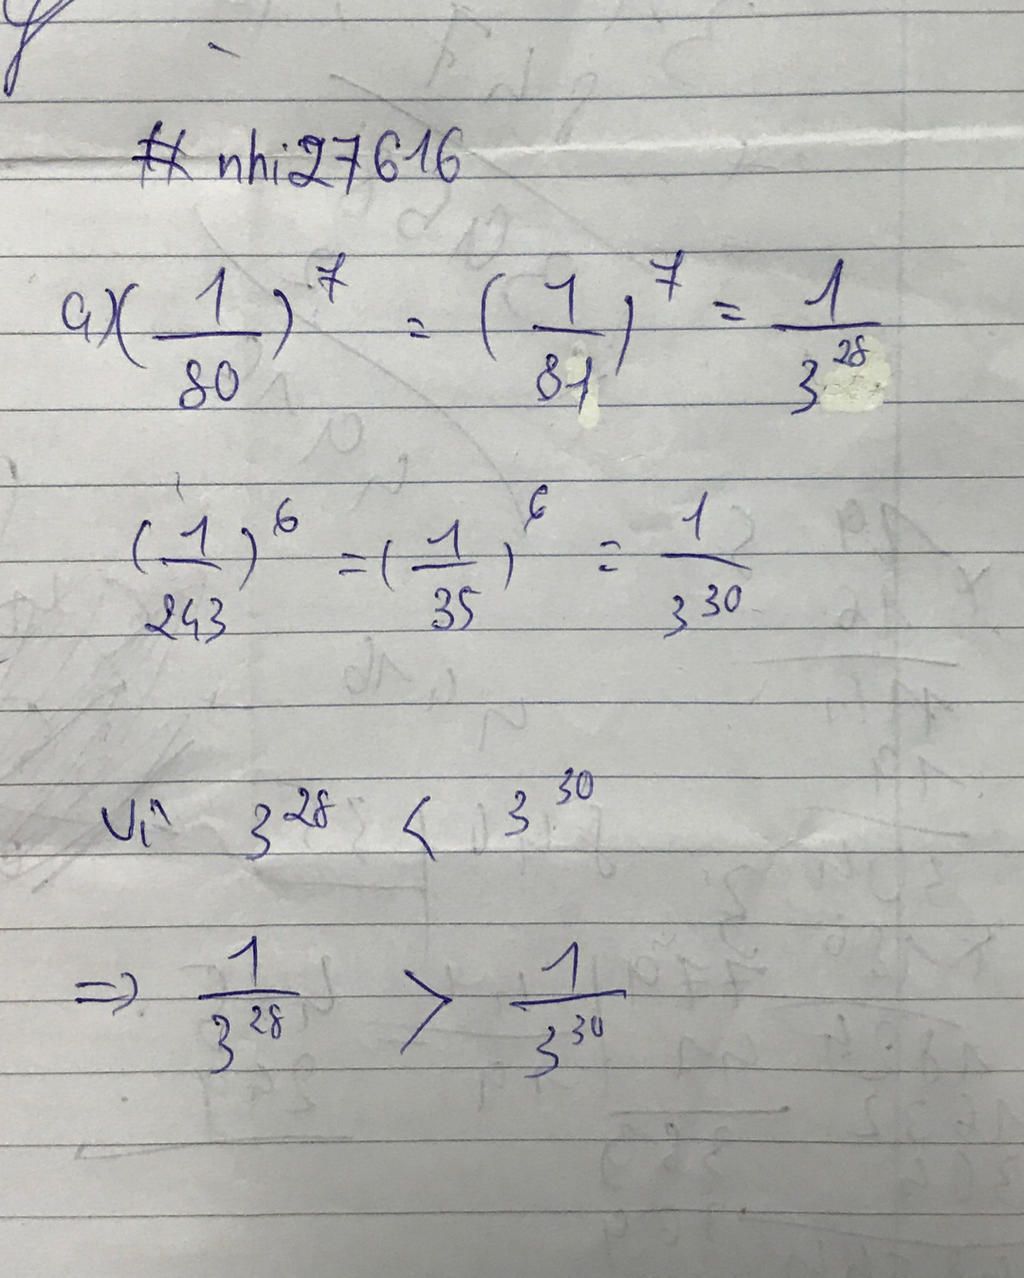 # nhi27616
a) (1/80)^7 = (1/81)^7 = 1/3^28
(1/243)^6 = (1/35)^6 = 1/3^30
Vì 3^28 < 3^30
=> 1/3^28 > 1/3^30